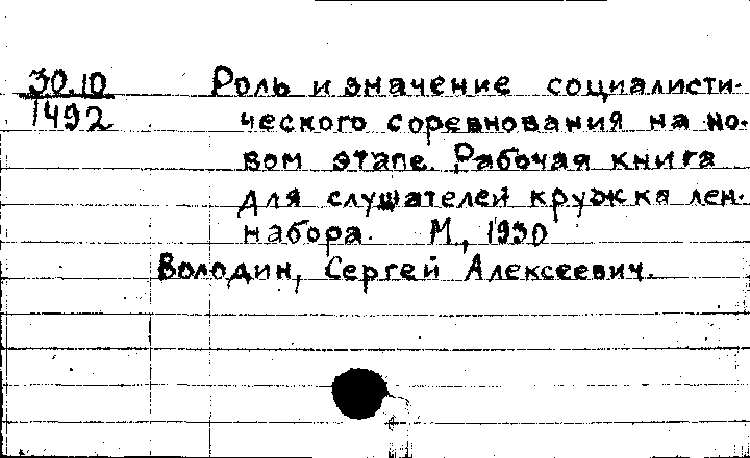 30.10 Роль и значение социалисти-
1492 ческого соревнования на но-
вом этапе. Рабочая книга
для слушателей кружка лен-
набора. М., 1930
Володин, Сергей Алексеевич.